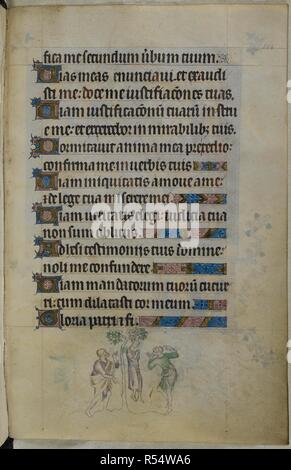 fica me secundum ūbum tuum.
Uias meas enunciaui. et exaudi
sti me: doce me iustificaciōnes tuas.
Uiam iustificacōnū tuarū instru
e me: et exercebor in mirabilibꝫ tuis.
Dormitauit anima mea pre tedio:
confirma me in uerbis tuis
Uiam iniquitatis amoue a me:
et de lege tua miserere mei
Uiam ueritatis elegi: iudicia tua
non sum oblitus.
Adhesi testimoniis tuis domine:
noli me confundere
Uiam mandatorum tuorū cucur
ri: cum dilatasti cor meum
Gloria patri
R54WA6